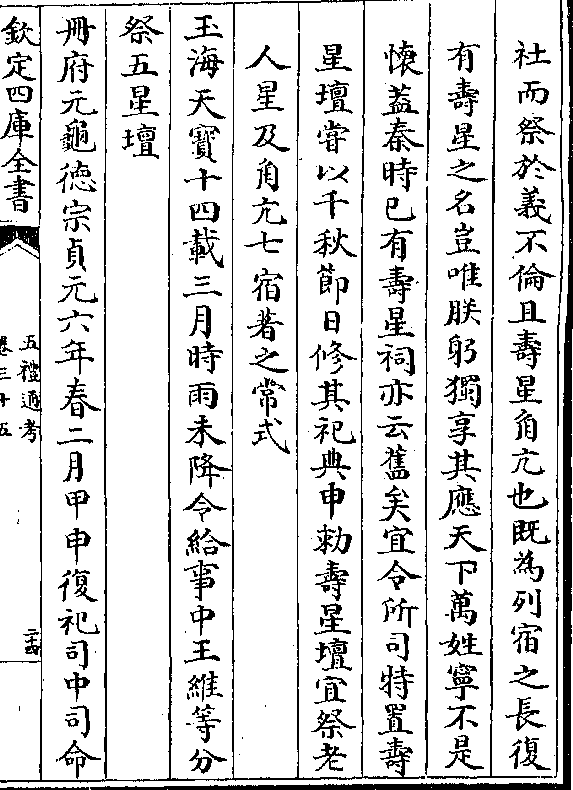 社而祭於義不倫且壽星角亢也既為列宿之長復
有壽星之名豈唯朕躬獨享其應天下萬姓寧不是
懷蓋秦時已有壽星祠亦云舊矣宜令所司特置壽
星壇甞以千秋節日修其祀典申勅壽星壇宜祭老
人星及角亢七宿著之常式
玉海天寶十四載三月時雨未降令給事中王維等分
祭五星壇
冊府元龜德宗貞元六年春二月甲申復祀司中司命
欽定四庫全書
五禮通考
卷三十五
二十四